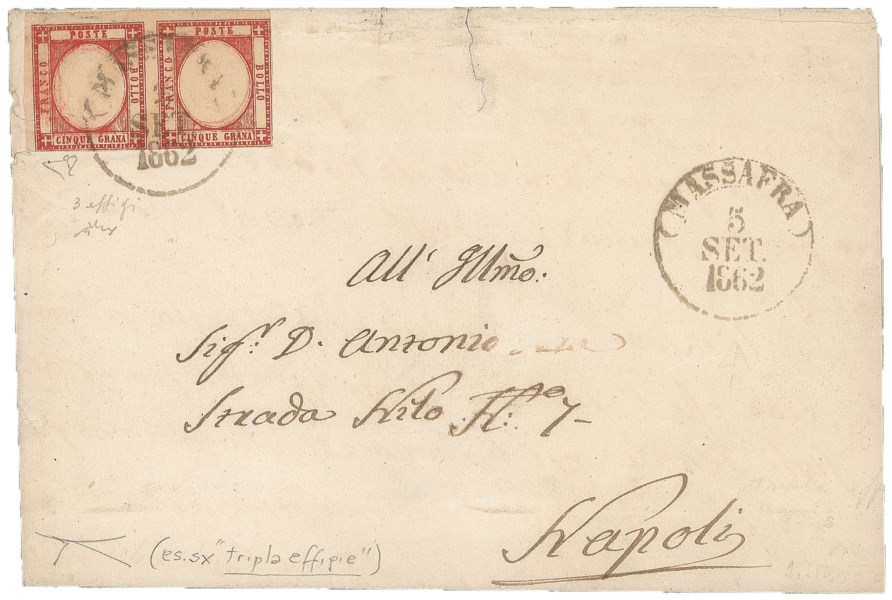 POSTE POSTE
FRANCO BOLLO FRANCO BOLLO
CINQUE GRANA CINQUE GRANA
SET
1862
3 effigi
MASSAFRA
5
SET.
1862
All' Illm̃o.
Sig.r D. Antonio
Strada Nilo N.o 7-
Napoli
(es. sx "tripla effigie")